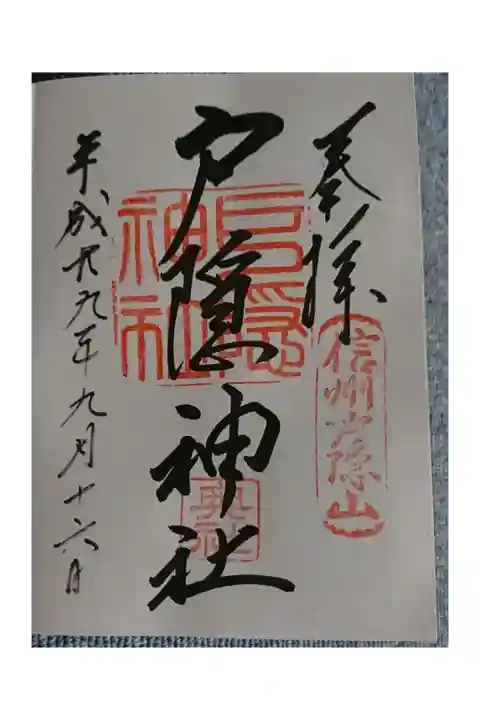 奉拝
信州戸隠山
戸隠神社
戸隠神社
奥社
平成廿九年九月十六日